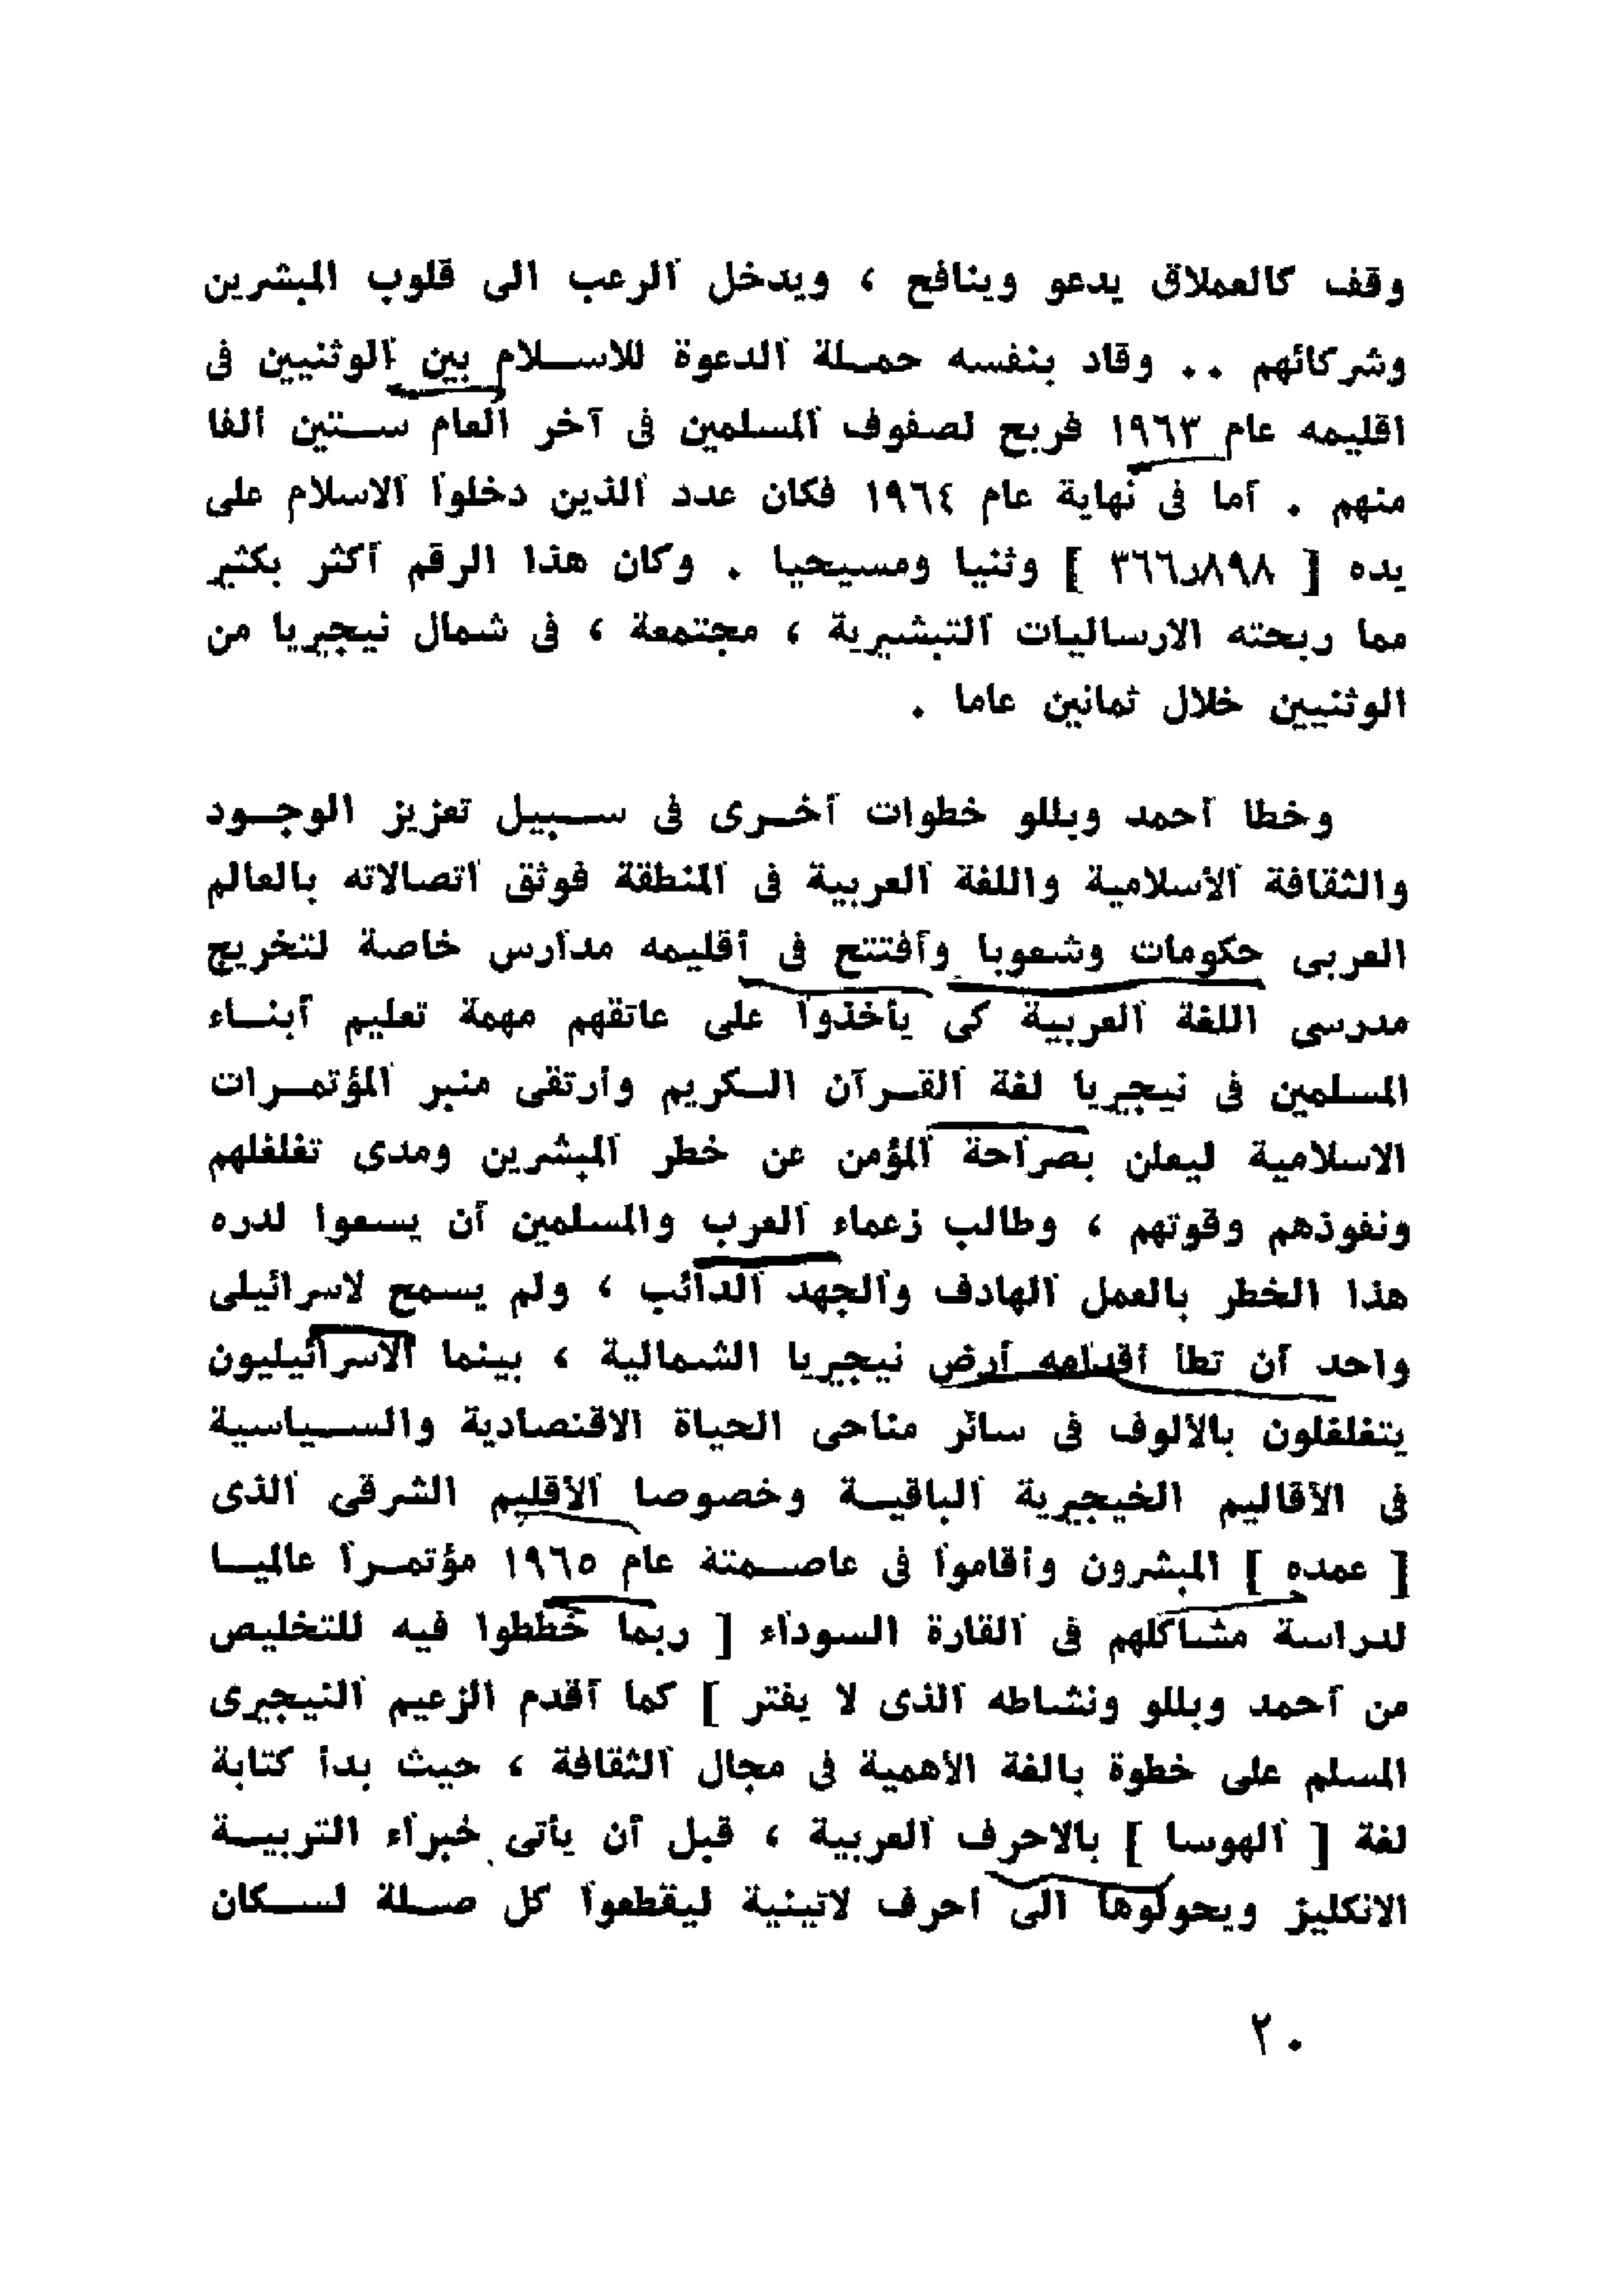 وقف كالعملاق يدعو وينافح ، ويدخل الرعب الى قلوب المبشرين
وشركائهم .. وقاد بنفسه حملة الدعوة للاسلام بين الوثنيين فى
اقليمه عام ١٩٦٣ فربح لصفوف المسلمين فى آخر العام ستين الفا
منهم . أما فى نهاية عام ١٩٦٤ فكان عدد الذين دخلوا الاسلام على
يده [ ٣٦٦ر٨٩٨ ] وثنيا ومسيحيا . وكان هذا الرقم أكثر بكثير
مما ربحته الارساليات التبشيرية ، مجتمعة ، فى شمال نيجيريا من
الوثنيين خلال ثمانين عاما .
وخطا أحمد وبللو خطوات أخرى فى سبيل تعزيز الوجود
والثقافة الأسلامية واللغة العربية فى المنطقة فوثق اتصالاته بالعالم
العربى حكومات وشعوبا وأفتتح فى أقليمه مدارس خاصة لتخريج
مدرسى اللغة العربية كى يأخذوا على عاتقهم مهمة تعليم أبناء
المسلمين فى نيجيريا لغة القرآن الكريم وارتقى منبر المؤتمرات
الاسلامية ليعلن بصراحة المؤمن عن خطر المبشرين ومدى تغلغلهم
ونفوذهم وقوتهم ، وطالب زعماء العرب والمسلمين أن يسعوا لدره
هذا الخطر بالعمل الهادف والجهد الدائب ، ولم يسمح لاسرائيلى
واحد أن تطأ أقدامه أرض نيجيريا الشمالية ، بينما الاسرائيليون
يتغلغلون بالألوف فى سائر مناحى الحياة الاقتصادية والسياسية
فى الأقاليم الخيجيرية الباقية وخصوصا الأقليم الشرقى الذى
[ عمده ] المبشرون وأقاموا فى عاصمتة عام ١٩٦٥ مؤتمرا عالميا
لدراسة مشاكلهم فى القارة السوداء [ ربما خططوا فيه للتخليص
من أحمد وبللو ونشاطه الذى لا يفتر ] كما أقدم الزعيم النيجيرى
المسلم على خطوة بالغة الأهمية فى مجال الثقافة ، حيث بدأ كتابة
لغة [ الهوسا ] بالاحرف العربية ، قبل أن يأتى خبراء التربية
الانكليز ويحولوها الى احرف لاتينية ليقطعوا كل صلة لسكان
٢٠